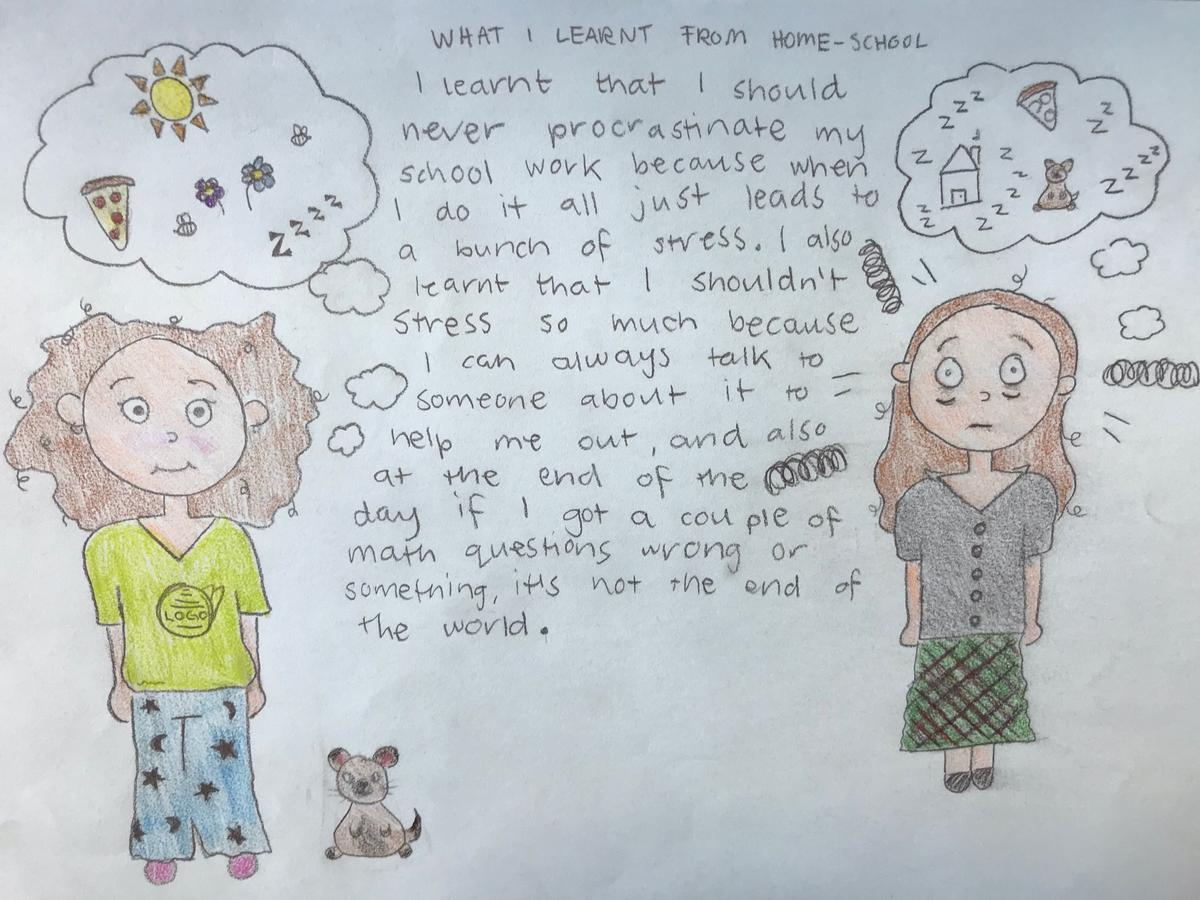 WHAT I LEARNT FROM HOME-SCHOOL
I learnt that I should
never procrastinate my
school work because when
I do it all just leads to
a bunch of stress. I also
learnt that I shouldn't
stress so much because
I can always talk to
someone about it to
help me out, and also
at the end of the
day if I got a couple of
math questions wrong or
something, it's not the end of
the world.
zzzz
z z z
z z
z
z
z z z
z z z z
z z
z z z z
LOGO